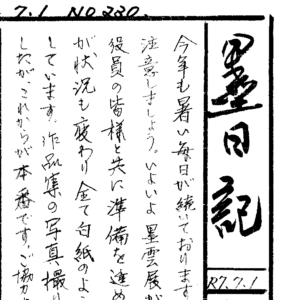 7.1 NO.220.
墨日記
R7.7.1
今年も暑い毎日が続いております
注意しましょう。いよいよ墨雲展が
役員の皆様と共に準備を進め
が状況も変わり全て白紙のよう
しています。作品集の写真撮り
したが、これからが本番です。ご協力